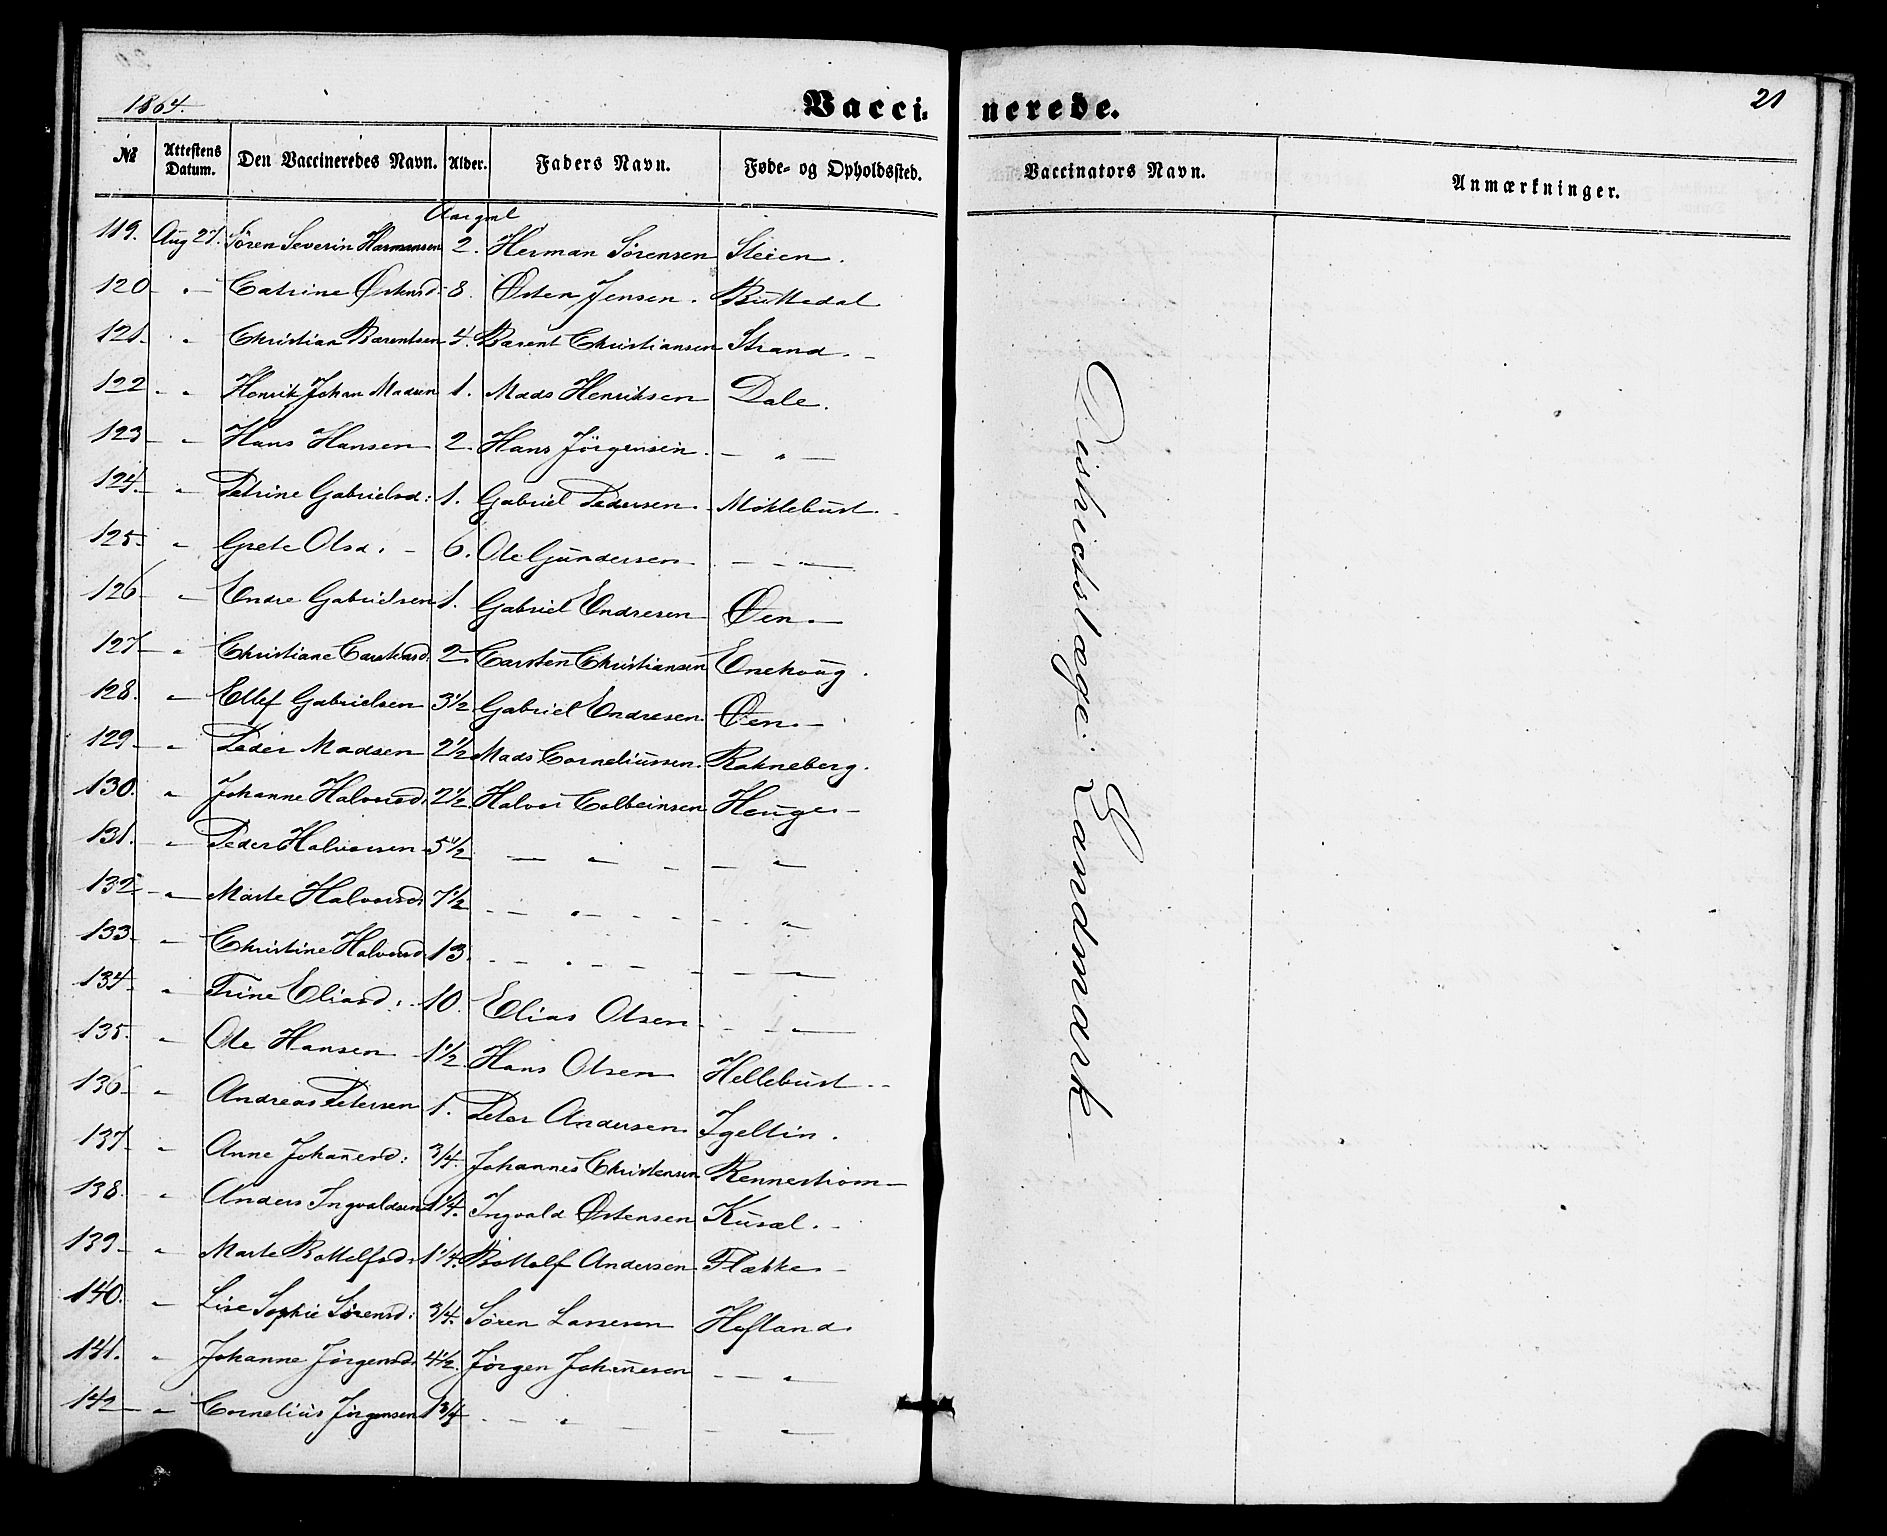 1864. Vaccinerede. 21
№ Attestens Datum. Den Vaccineredes Navn. Alder. Faders Navn. Føde- og Opholdssted. Vaccinators Navn. Anmærkninger.
Aar gml
119. Aug 27. Sören Severin Harmansen 2. Herman Sörensen Steien.
120 - " - Catrine Østensd: 8. Østen Jensen. Buttedal
121. " Christian Barentsen 4. Barent Christiansen Strand. -
122 - " Henrik Johan Madsen 1. Mads Henriksen Dale.
123 - " Hans Hansen 2. Hans Jörgensen. - " -
124. - " Petrine Gabrielsd: 1. Gabriel Pedersen. Möklebust.
125 " Grete Olsd. - 6. Ole Gundersen - - " -
126 - " Endre Gabrielsen 1. Gabriel Endresen Øen. -
127 - " Christiane Carstensd. 2. Carsten Christiansen Enehoug.
128. " Ellef Gabrielsen 3 1/2 Gabriel Endresen. Øen. -
129 - " Peder Madsen 2 1/2 Mads Corneliussen. Rakneberg.
130. " Johanne Halvorsd. 2 1/2 Halvor Colbeinsen Houge -
131. " Peder Halvorsen 5 1/2 - " - - " -
132 - " Marte Halvorsd. 7 1/2 - - " - - - - "
133 - " Christine Halvorsd. 13. - - " - - - - " -
134 - " Trine Eliasd. 10. Elias Olsen - - " -
135. " Ole Hansen 1 1/2 Hans Olsen Hellebust. -
136 - " Andreas Petersen 1. Peter Andersen. Igeltin.
137 - " Anne Johanesd: 3/4. Johannes Christensen Rennestrøm -
138. " Anders Ingvaldsen 1 1/4. Ingvald Østensen Kusal. -
139 - " Marte Bottolfsd. 1 1/4. Bottolf Andersen Flekke -
140. " Lise Sophie Sörensd: 3/4. Sören Larsen Hofland.
141. " Johanne Jörgensd. 4 1/2. Jörgen Johanesen - - " -
142 - " Cornelius Jörgensen 1 3/4 - - " - - - " -
Districtslæge: Landmark.